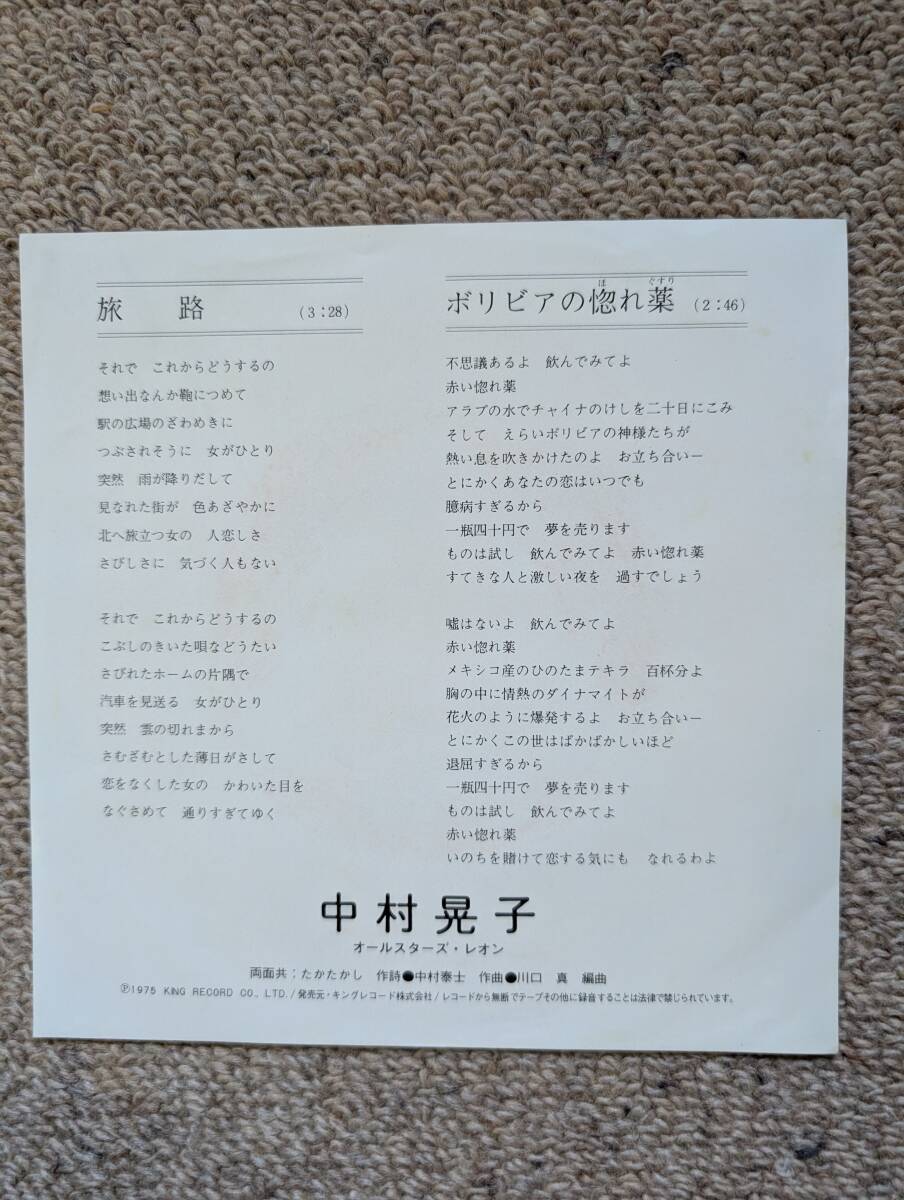 旅　路　(3:28)
それで　これからどうするの
想い出なんか鞄につめて
駅の広場のざわめきに
つぶされそうに　女がひとり
突然　雨が降りだして
見なれた街が　色あざやかに
北へ旅立つ女の　人恋しさ
さびしさに　気づく人もない
それで　これからどうするの
こぶしのきいた唄などうたい
さびれたホームの片隅で
汽車を見送る　女がひとり
突然　雲の切れまから
さむざむとした薄日がさして
恋をなくした女の　かわいた目を
なぐさめて　通りすぎてゆく
ボリビアの惚れ薬　(2:46)
ほ　ぐすり
不思議あるよ　飲んでみてよ
赤い惚れ薬
アラブの水でチャイナのけしを二十日にこみ
そして　えらいボリビアの神様たちが
熱い息を吹きかけたのよ　お立ち合いー
とにかくあなたの恋はいつでも
臆病すぎるから
一瓶四十円で　夢を売ります
ものは試し　飲んでみてよ　赤い惚れ薬
すてきな人と激しい夜を　過すでしょう
嘘はないよ　飲んでみてよ
赤い惚れ薬
メキシコ産のひのたまテキラ　百杯分よ
胸の中に情熱のダイナマイトが
花火のように爆発するよ　お立ち合いー
とにかくこの世はばかばかしいほど
退屈すぎるから
一瓶四十円で　夢を売ります
ものは試し　飲んでみてよ
赤い惚れ薬
いのちを賭けて恋する気にも　なれるわよ
中村晃子
オールスターズ・レオン
両面共：たかたかし　作詩●中村泰士　作曲●川口　真　編曲
Ⓟ1975 KING RECORD CO., LTD./発売元・キングレコード株式会社/レコードから無断でテープその他に録音することは法律で禁じられています。